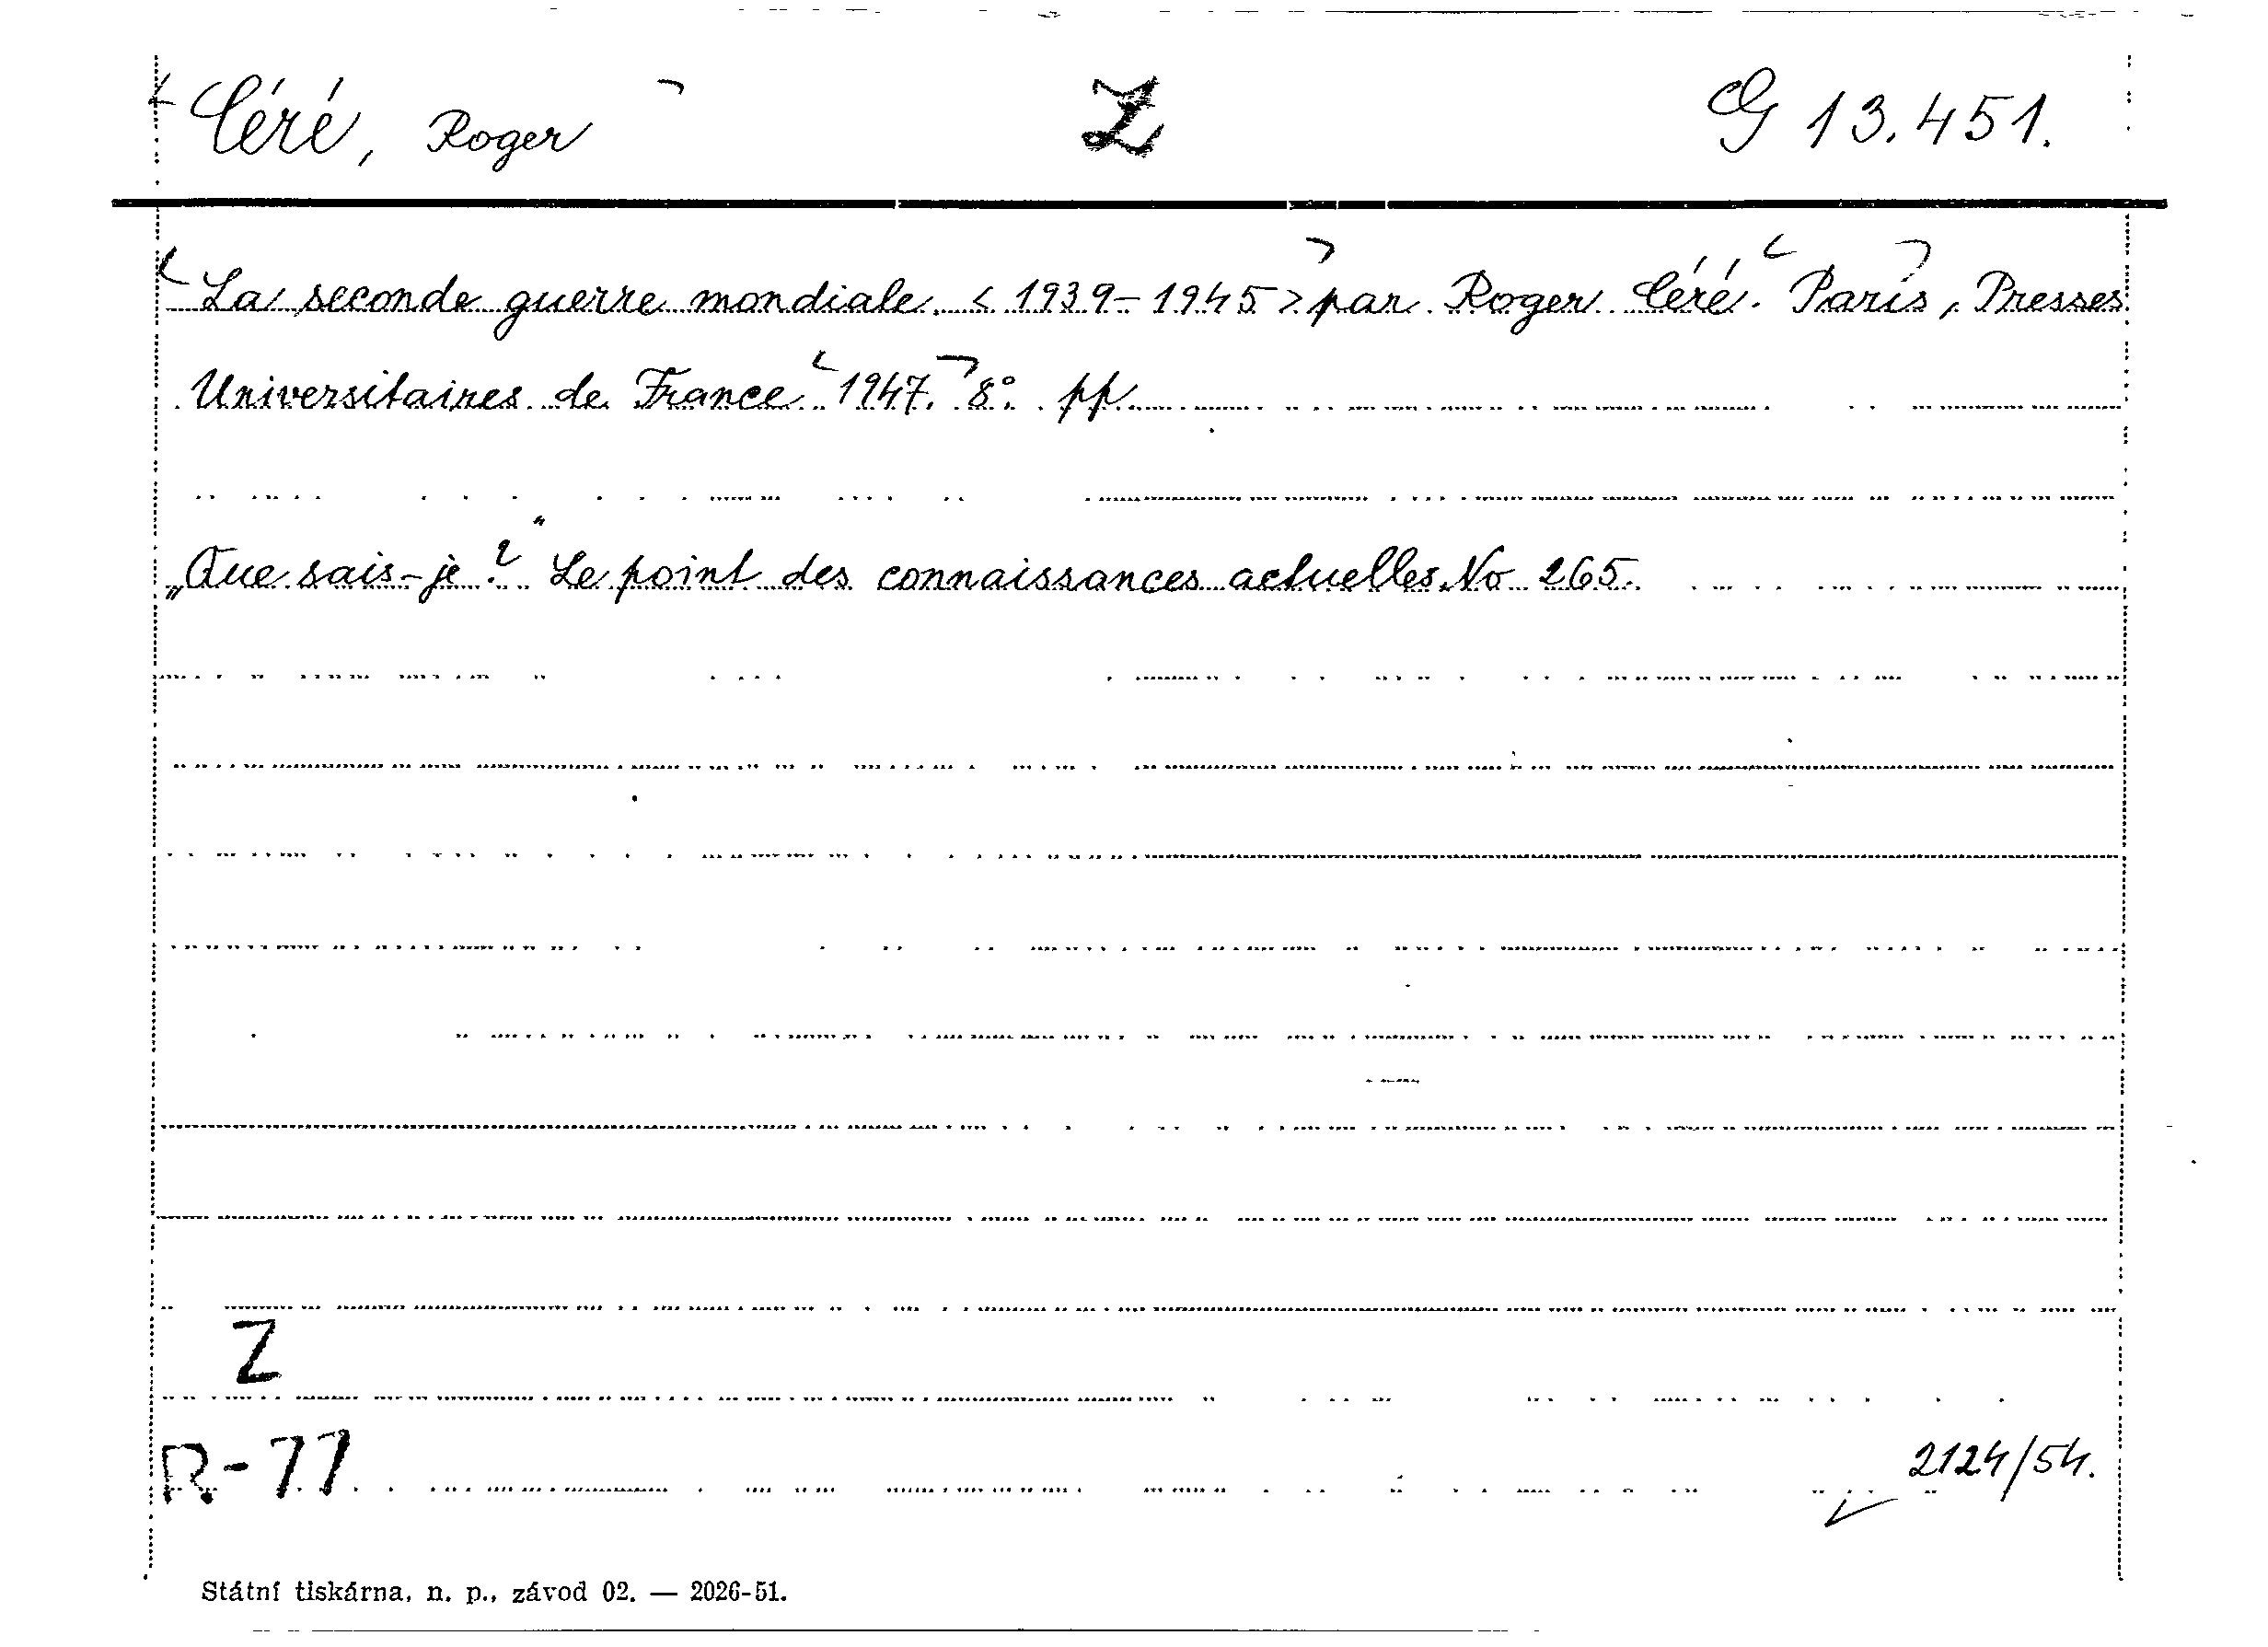 Céré, Roger Z G 13.451.
La seconde guerre mondiale < 1939-1945 > par Roger Céré. Paris, Presses
Universitaires de France 1947. 8° pp.
„Que sais-je?" Le point des connaissances actuelles. No 265.
Z
R-77
2124/54.
Státní tiskárna, n. p., závod 02. — 2026-51.